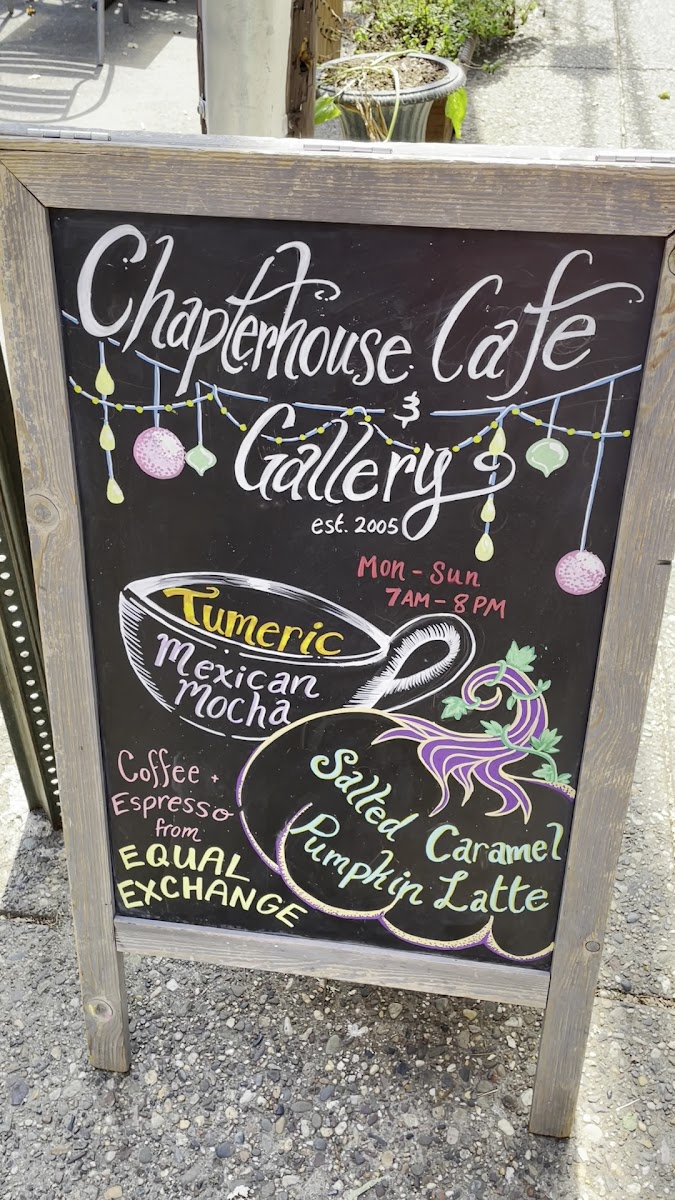 Chapterhouse Cafe
&
Gallery
est. 2005
Mon - Sun
7AM - 8PM
Tumeric
Mexican
Mocha
Salted Caramel
Pumpkin Latte
Coffee +
Espresso
from
EQUAL
EXCHANGE